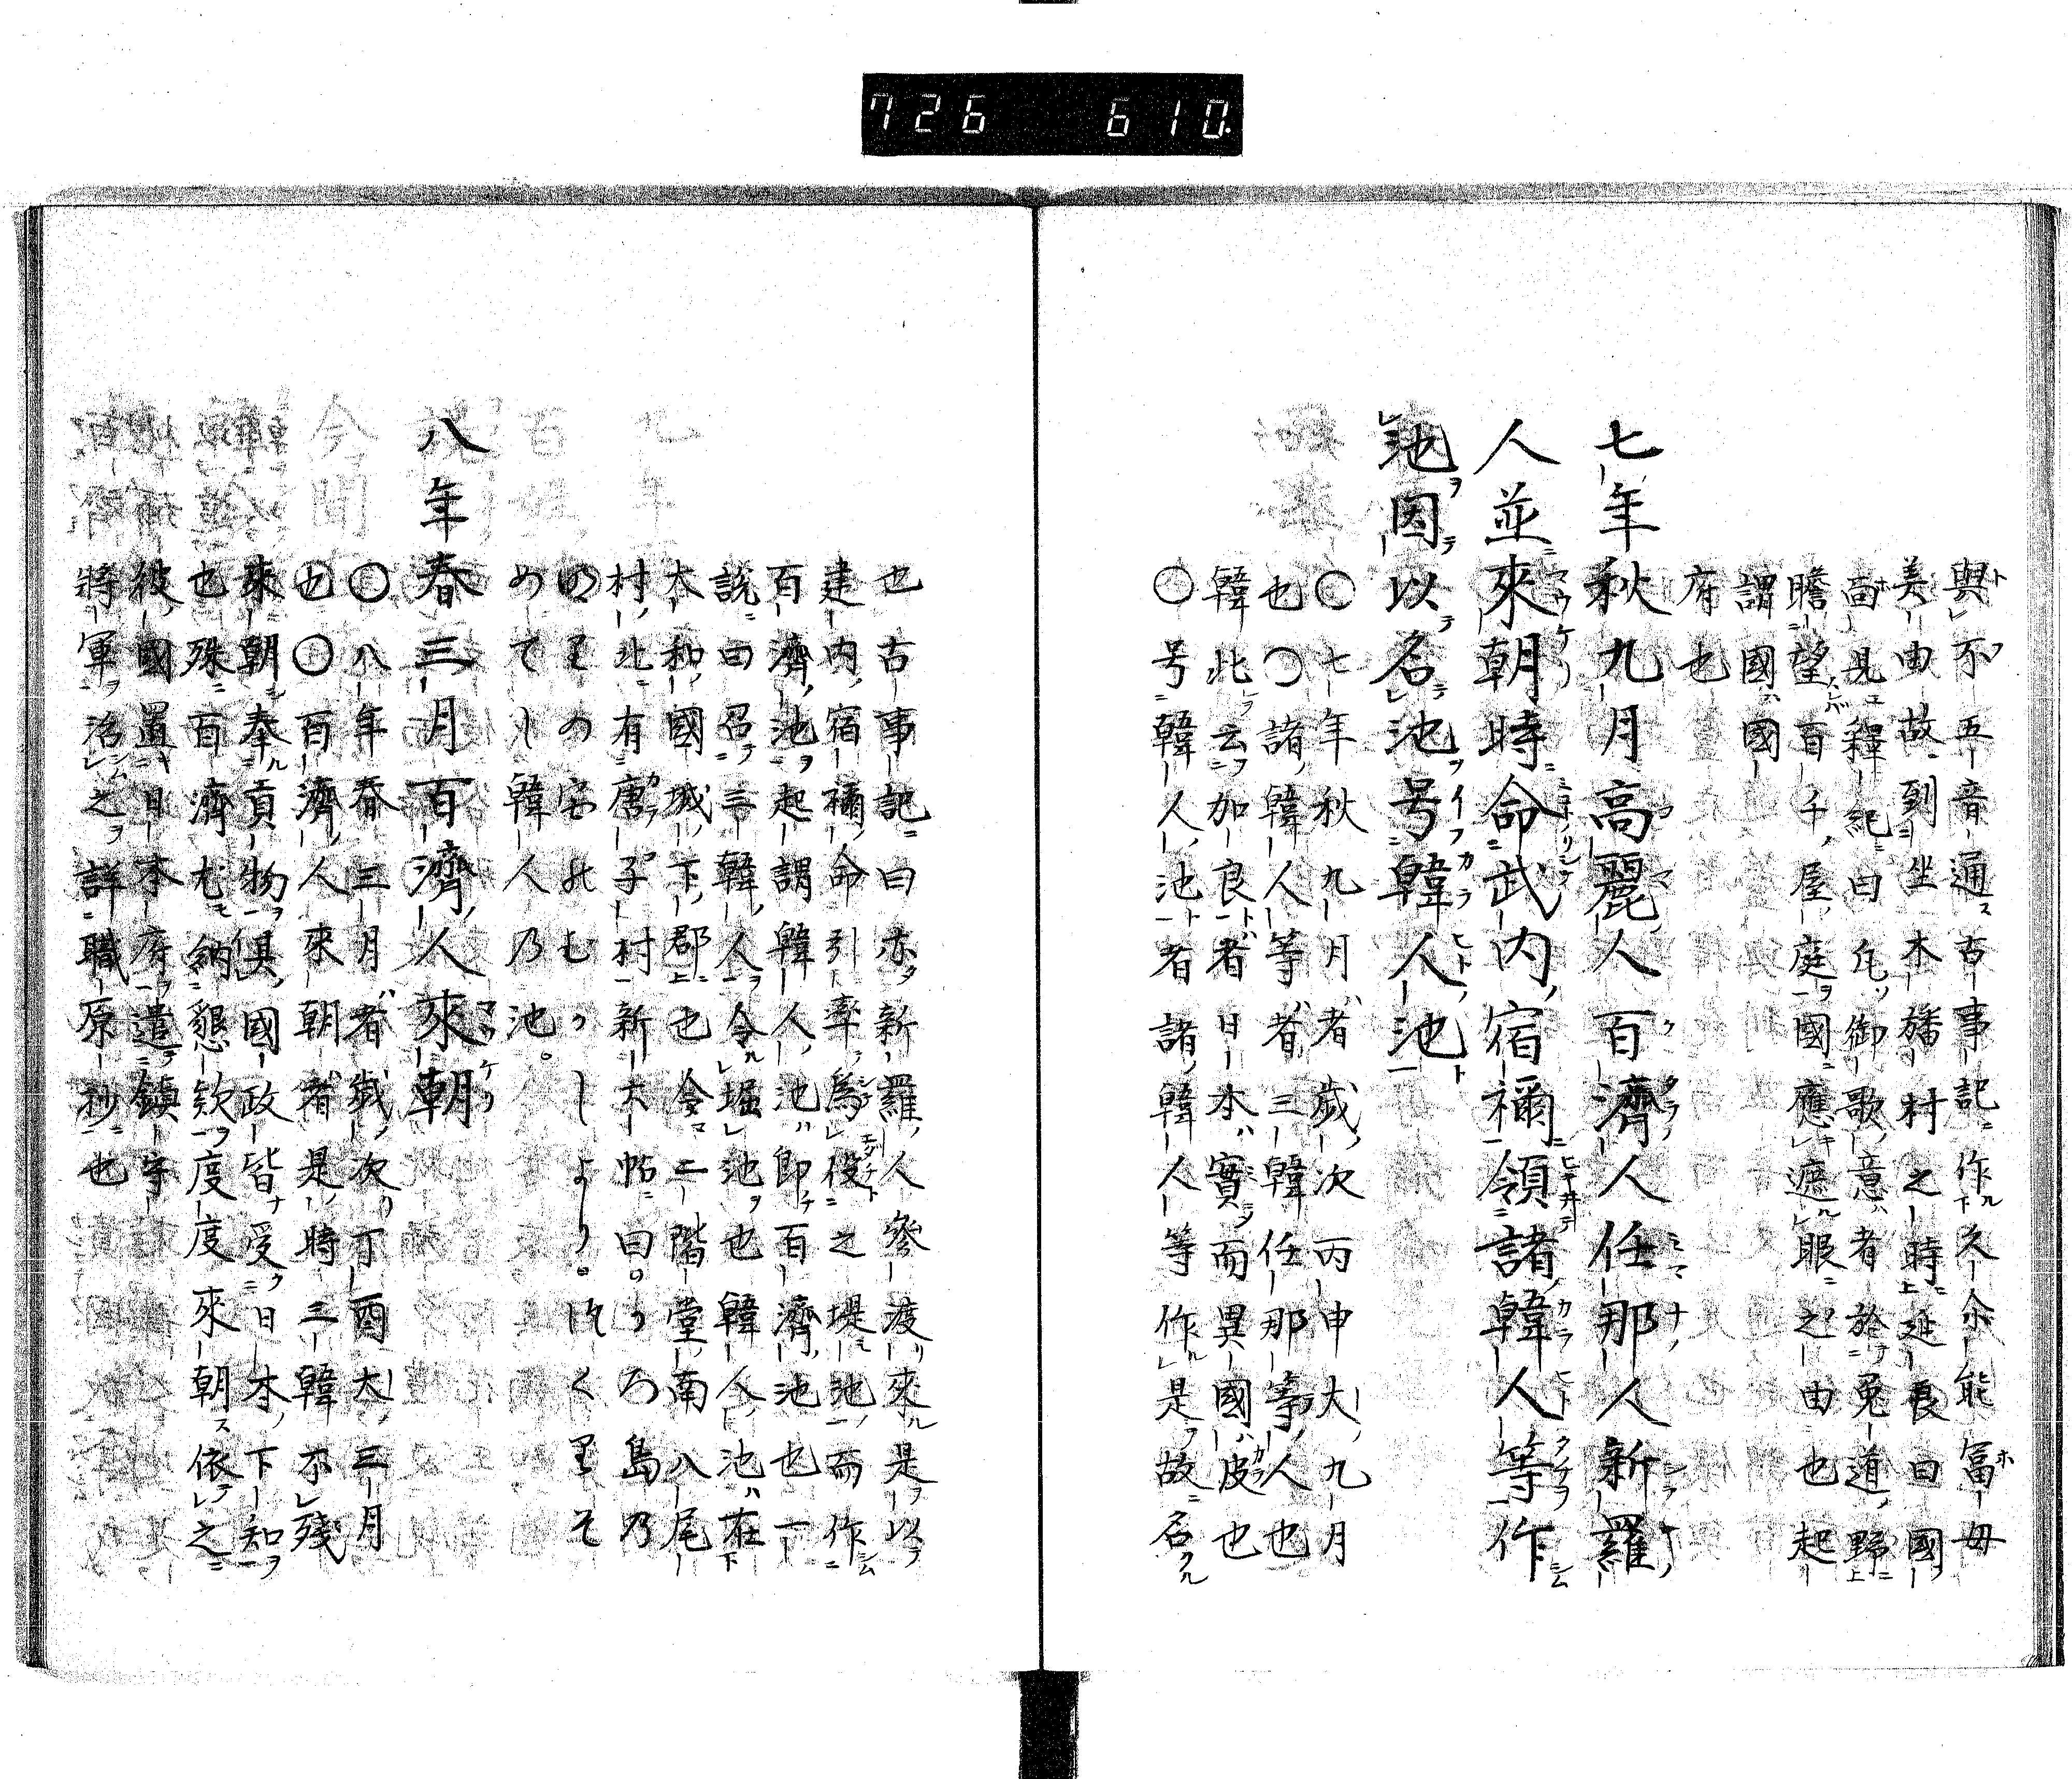 726 610
與不五音通古事記作久尒能冨母
美由故到坐木幡村之時延長曰國
面見釋紀曰凡御歌意者於兎道野
瞻望百千屋庭國應遮眼之由也起
謂國國
府也
七年秋九月高麗人百濟人任那人新羅
人並來朝時命武内宿禰領諸韓人等作
池因以名池号韓人池
〇七年秋九月者歲次丙申大九月
也〇諸韓人等者三韓任那等人也
韓此云加良者日本實而異國皮也
〇号韓人池者諸韓人等作是故名
也古事記曰亦新羅人參渡來是以
建内宿禰命引率爲役之堤池而作
百濟池起謂韓人池即百濟池也一
説曰召三韓人令堀池也韓人池在
大和國城下郡也今二階堂南八尾
村北有唐子村新六帖曰
めてし韓人乃池
八年春三月百濟人來朝
〇八年春三月者歲次丁酉大三月
也〇百濟人來朝者是時三韓不殘
來朝奉貢物俱國政皆受日本下知
也殊百濟尤納懇欵度度來朝依之
彼國置日本府遣鎮守
將軍治之詳職原抄也